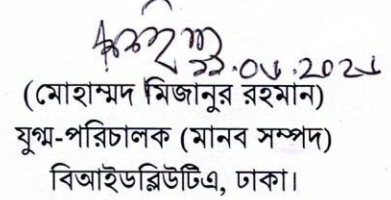 (মোহাম্মদ মিজানুর রহমান)
যুগ্ম-পরিচালক (মানব সম্পদ)
বিআইডব্লিউটিএ, ঢাকা।